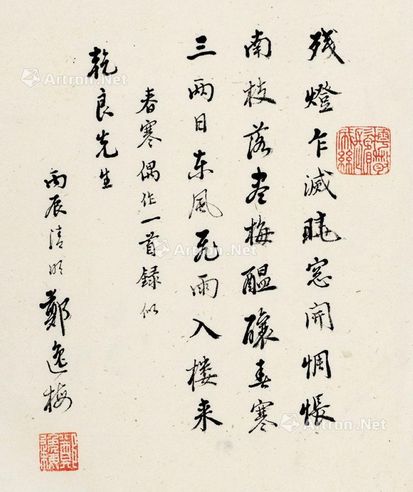 残燈乍滅曉窓開惆悵
南枝落盡梅醖釀春寒
三两日东風飛雨入楼来
春寒偶作一首録似
乾良先生
丙辰清明鄭逸梅
Artron.Net
Artron.Net
Artron.Net
Artron.Net